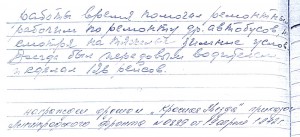 работы время помогал ремонтным
рабочим по ремонту др. автобусов, не
смотря на тяжелые зимние услов
был передовым водителем
сделал 126 рейсов.
награжден орденом "Красная Звезда" приказом
Ленинградского фронта